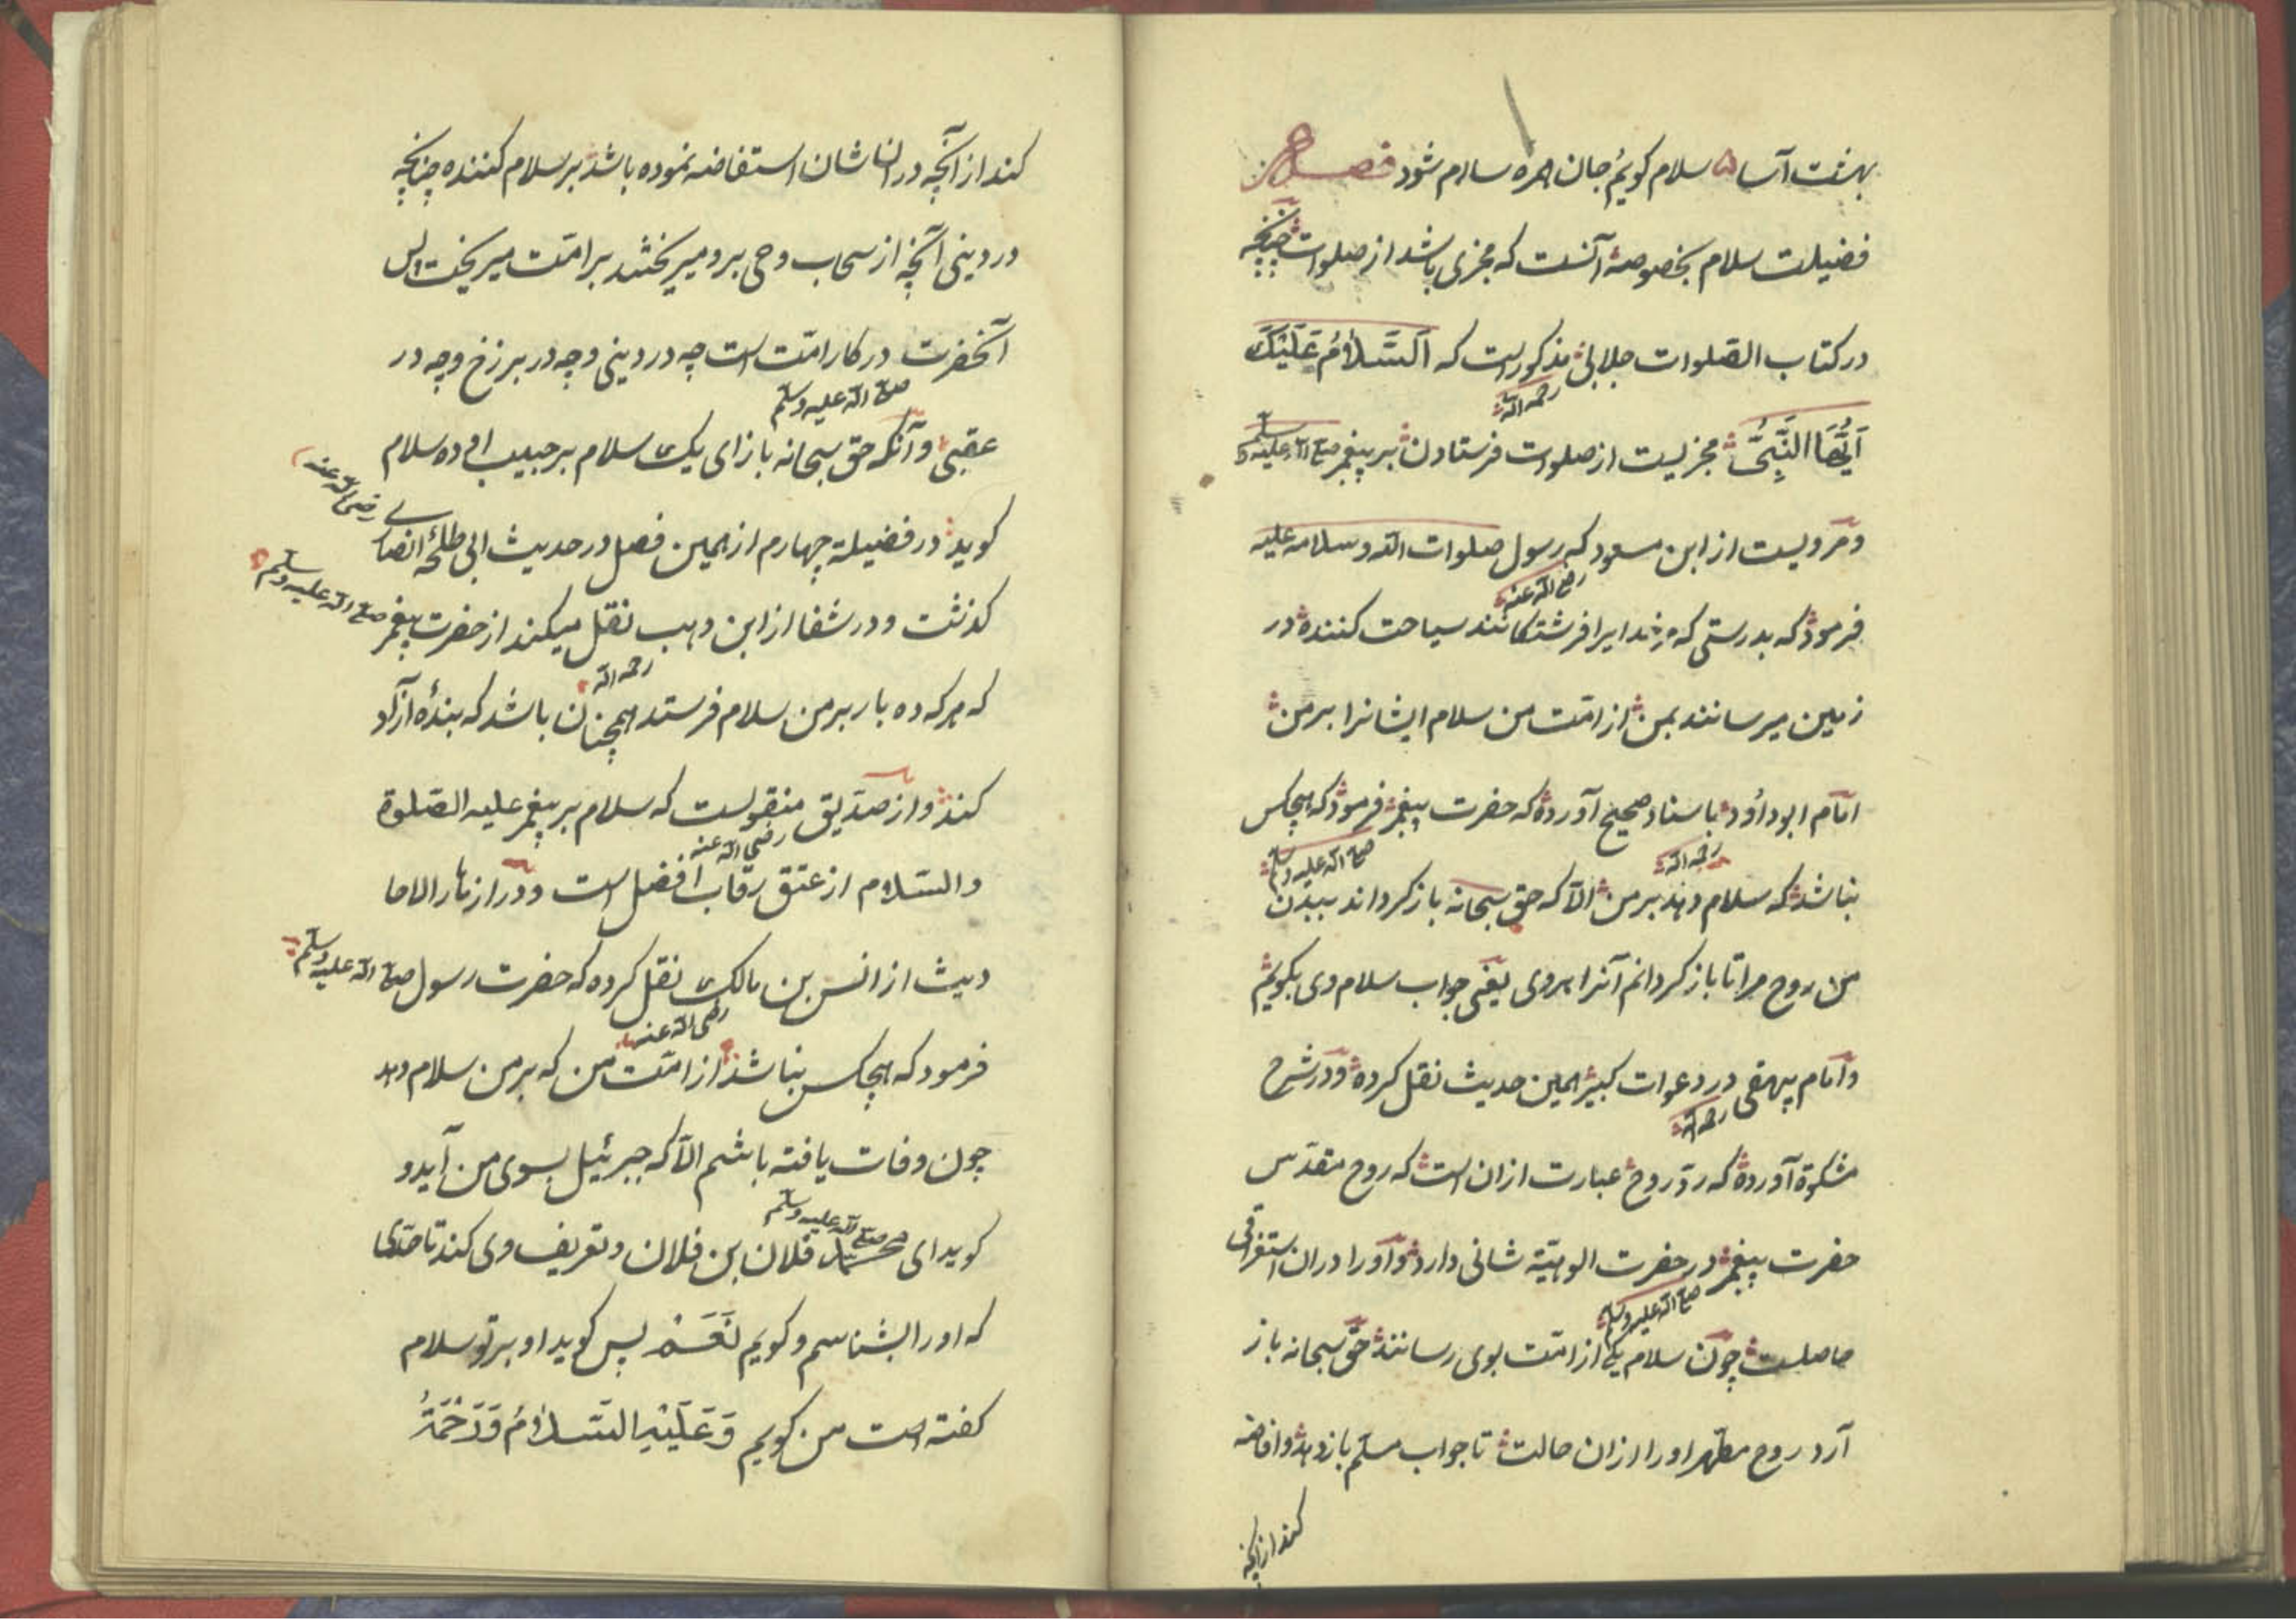 بهشت آسا ۵ سلام گویم جان همره سلام شود فصل
فضیلت سلام بخصوصه آنست که مجزی باشد از صلوات چنانچه
در کتاب الصّلوات جلالی مذکور است که اَلسَّلَامُ عَلَیْكَ
رحمه الله
اَیُّهَا النَّبِیُّ مجزیست از صلوات فرستادن بر پیغمبر صلی الله علیه وسلم
و مرویست از ابن مسعود که رسول صلوات الله و سلامه علیه
رضی الله عنه
فرمود که بدرستی که مر خدایرا فرشتکانند سیاحت کننده در
زمین میرسانند بمن از امّت من سلام ایشانرا بر من
امام ابو داؤد باسناد صحیح آورده که حضرت پیغمبر فرمود که هیچکس
رحمه الله
صلی الله علیه وسلم
نباشد که سلام دهد بر من الّا که حق سبحانه باز کرداند ببدن
من روح مرا تا باز کردانم آنرا بروی یعنی جواب سلام وی بکویم
و امام بیهقی در دعوات کبیر همین حدیث نقل کرده و در شرح
رحمه الله
مشکوة آورده که ردّ روح عبارت ازان است که روح مقدّس
حضرت پیغمبر در حضرت الوهیّة شانی دارد و او را دران استغراقی
صلی الله علیه وسلم
حاصلست چون سلام یکی از امّت بوی رسانند حق سبحانه باز
آرد روح مطهر او را ازان حالت تا جواب مسلّم باز دهد و افاضه
کند از آنچه
کند از آنچه در ان شان استفاضه نموده باشد بر سلام کننده چنانچه
در دینی آنچه از سحاب وحی برو میریختند بر امّت میریخت پس
آنحضرت در کار امّت است چه در دینی و چه در برزخ و چه در
صلی الله علیه وسلم
عقبی و آنکه حق سبحانه بازای یک سلام بر حبیب او ده سلام
کوید در فضیلة چهارم از همین فصل در حدیث ابی طلحه انصاری رضی الله عنه
کذشت و در شفا از ابن وهب نقل میکند از حضرت پیغمبر صلی الله علیه وسلم
رحمه الله
که هر که ده بار بر من سلام فرستد همچنان باشد که بندهٔ آزاد
کند و از صدّیق منقولست که سلام بر پیغمبر علیه الصّلوة
رضی الله عنه
والسّلام از عتق رقاب افضل است و در ازهار الاحا
دیث از انس بن مالک نقل کرده که حضرت رسول صلی الله علیه وسلم
رضی الله عنه
فرمود که هیچکس نباشد از امّت من که بر من سلام دهد
چون وفات یافته باشم الّا که جبرئیل بسوی من آید و
صلی الله علیه وسلم
کوید ای محمد فلان بن فلان و تعریف وی کند تا حدّی
که او را بشناسم و کویم نَعَمْ پس کوید او بر تو سلام
کفته است من کویم وَعَلَیْهِ السَّلَامُ وَرَحْمَةُ